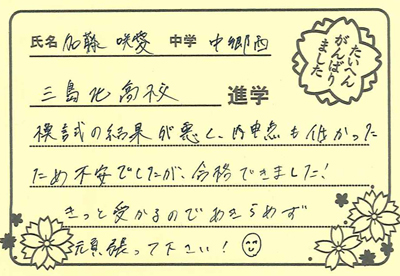 氏名 加藤 咲愛 中学 中郷西
たいへん
がんばり
ました
三島北高校 進学
模試の結果が悪く、内申点も低かった
ため不安でしたが、合格できました!
きっと受かるのであきらめず
頑張って下さい!